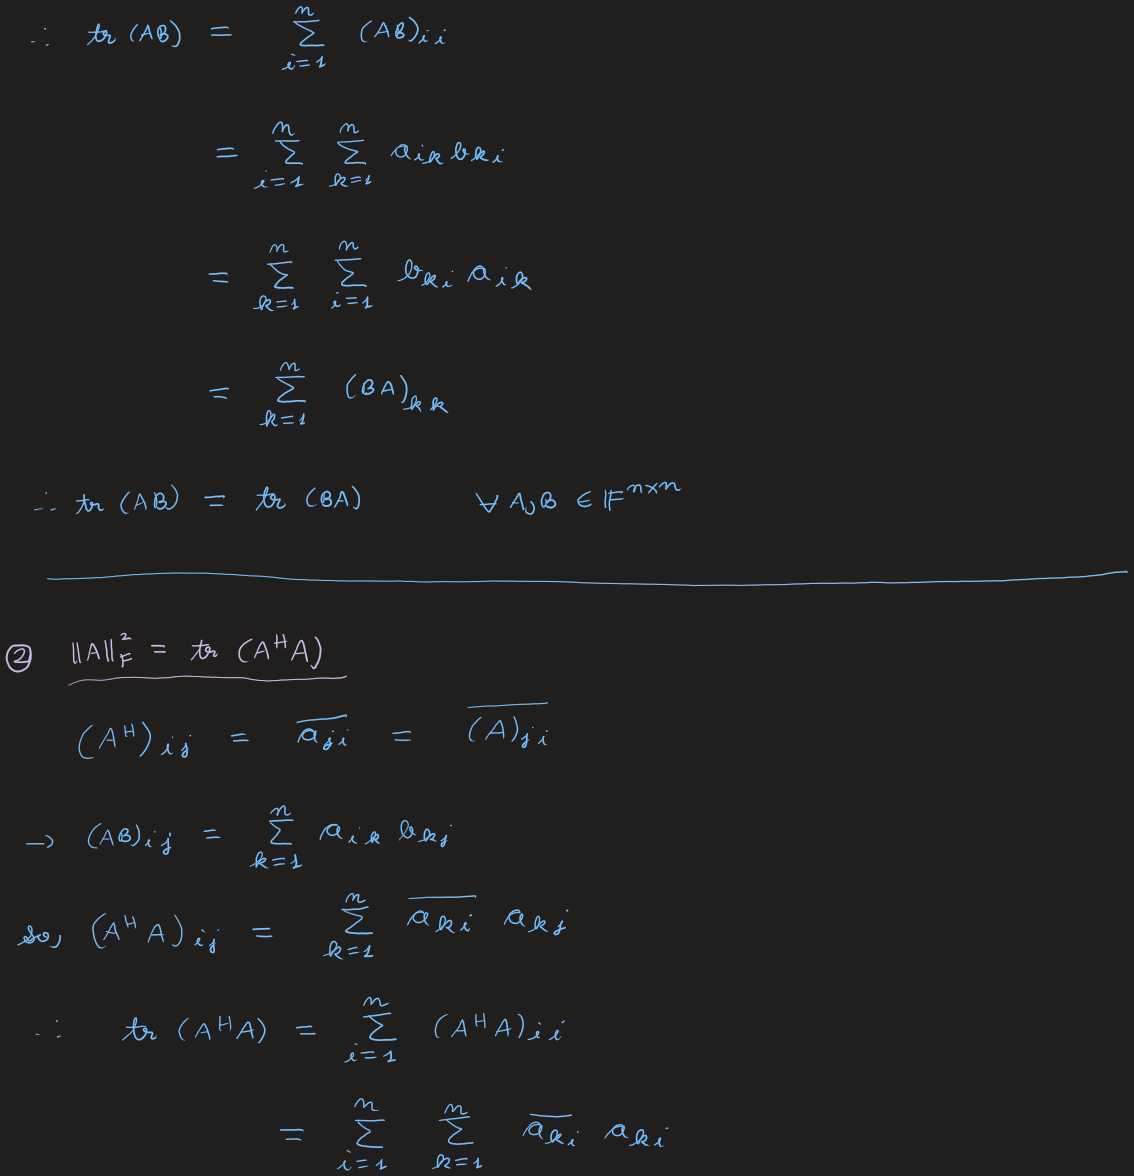 ∴ tr (AB) = \sum_{i=1}^{n} (AB)_{ii}
= \sum_{i=1}^{n} \sum_{k=1}^{n} a_{ik} b_{ki}
= \sum_{k=1}^{n} \sum_{i=1}^{n} b_{ki} a_{ik}
= \sum_{k=1}^{n} (BA)_{kk}
∴ tr (AB) = tr (BA) ∀ A, B ∈ 𝔽^{n×n}
② ||A||_F^2 = tr (A^H A)
(A^H)_{ij} = \overline{a_{ji}} = \overline{(A)_{ji}}
→ (AB)_{ij} = \sum_{k=1}^{n} a_{ik} b_{kj}
so, (A^H A)_{ij} = \sum_{k=1}^{n} \overline{a_{ki}} a_{kj}
∴ tr (A^H A) = \sum_{i=1}^{n} (A^H A)_{ii}
= \sum_{i=1}^{n} \sum_{k=1}^{n} \overline{a_{ki}} a_{ki}